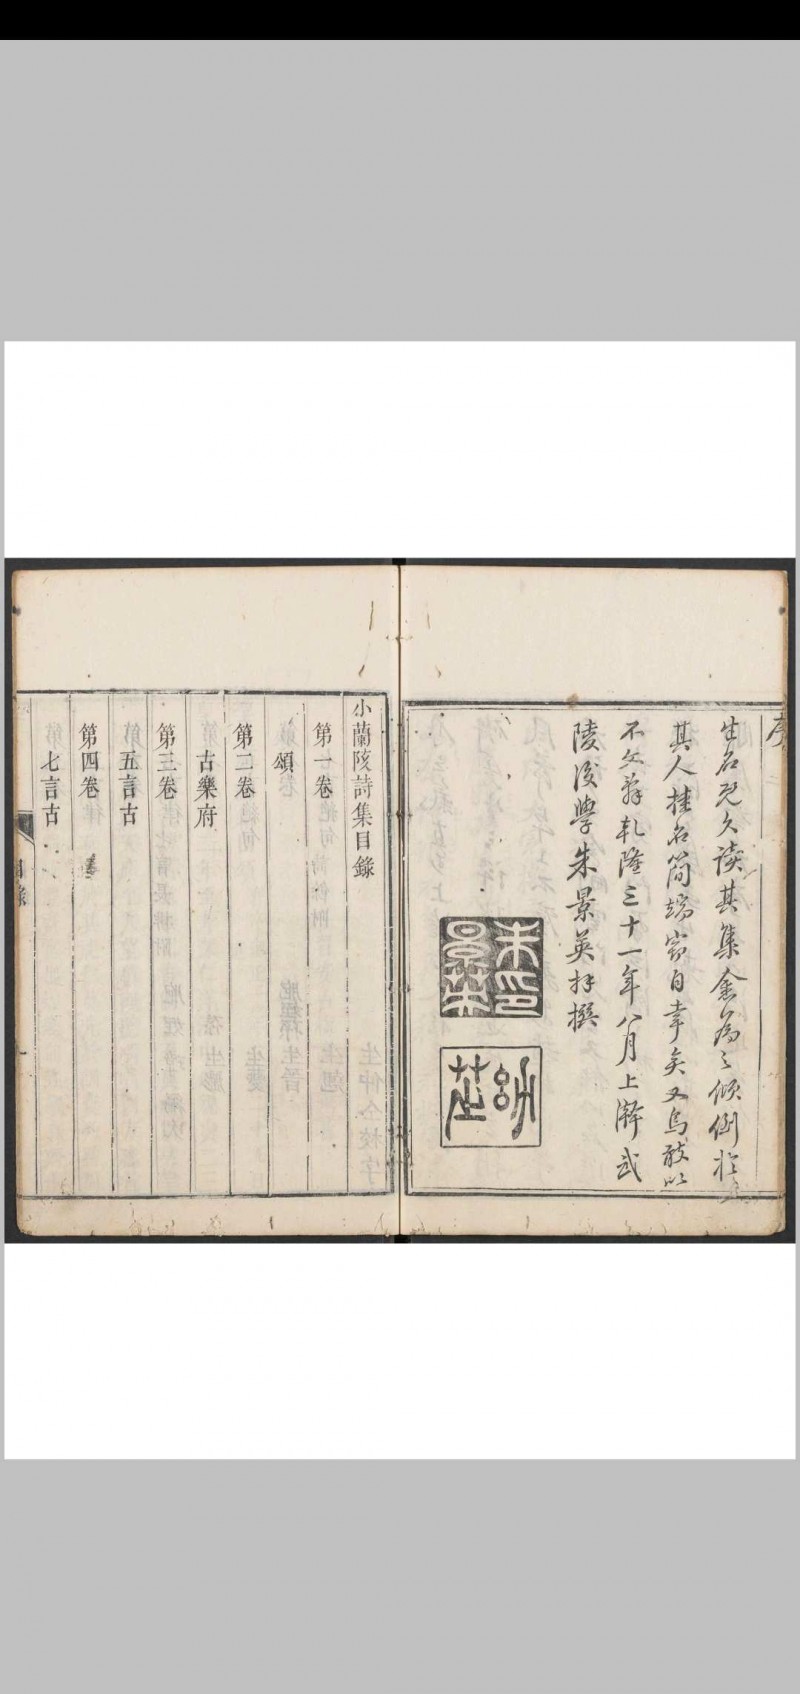 序
生名既久讀其集益為之傾倒於
其人挂名簡端竊自幸矣又烏敢以
不文辭乾隆三十一年八月上澣武
陵後學朱景英拜撰
朱景英印
幼芝
小蘭陔詩集目錄
第一卷
頌
第二卷
古樂府
第三卷
五言古
第四卷
七言古
目錄